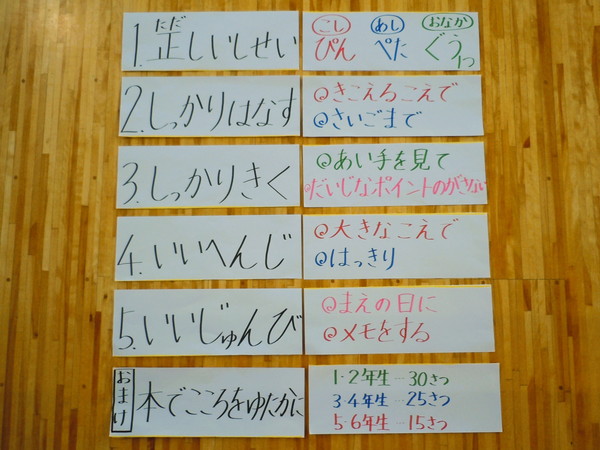 1.正しいしせい
ただ
こし あし おなか
ぴん ぺた ぐうっ
2.しっかりはなす
◎きこえるこえで
◎さいごまで
3.しっかりきく
◎あい手を見て
◎だいじなポイントのがさない
4.いいへんじ
◎大きなこえで
◎はっきり
5.いいじゅんび
◎まえの日に
◎メモをする
おまけ
本でこころをゆたかに
1・2年生…30さつ
3・4年生…25さつ
5・6年生…15さつ